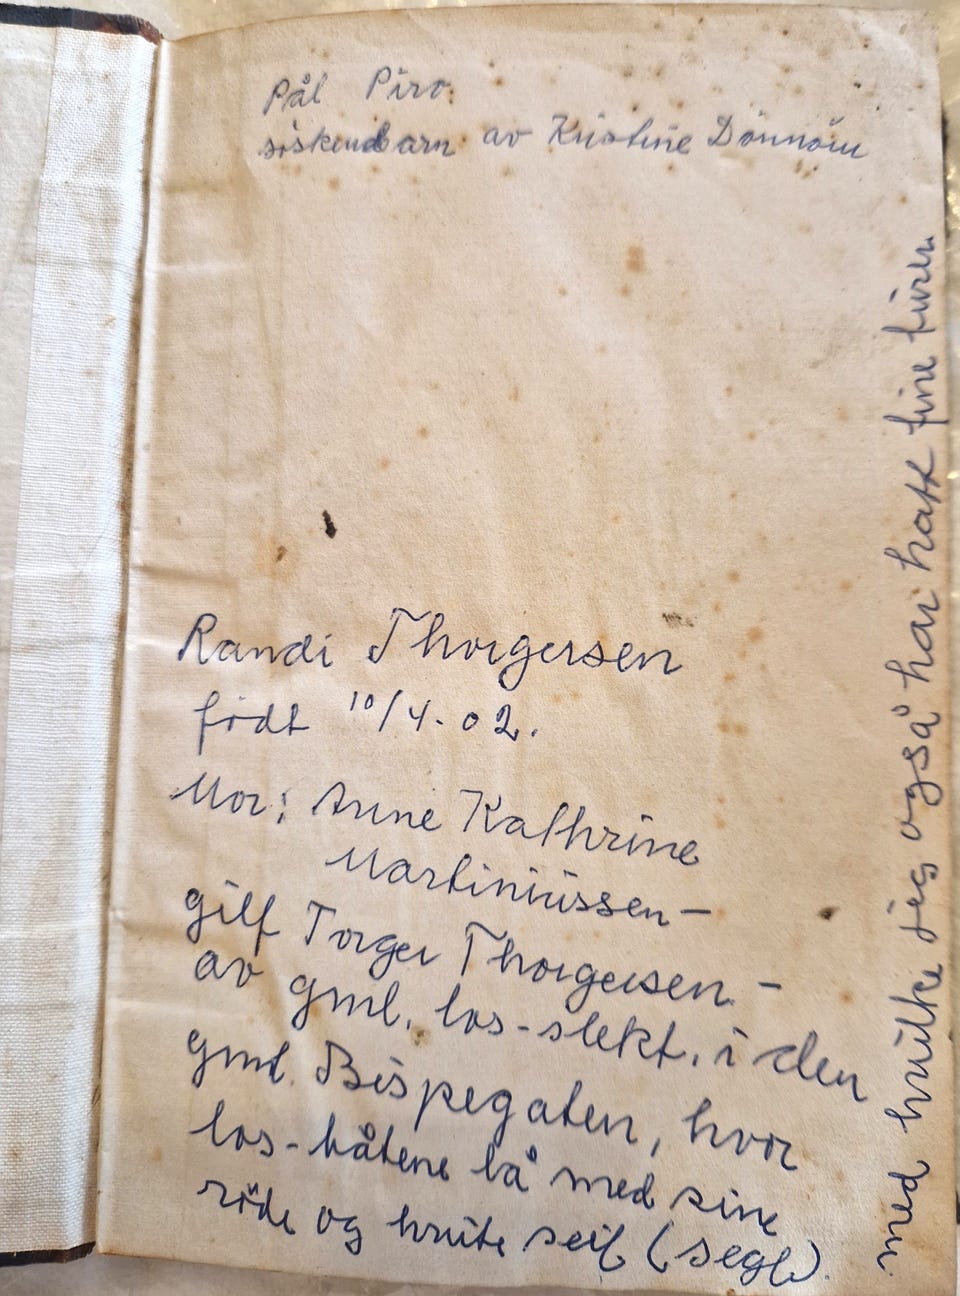 Pål Piro.
søskenbarn av Kristine Dønnum
Randi Thorgersen
født 10/4-02.
Mor: Anne Kathrine
Martiniussen -
gift Torger Thorgersen -
av gml. los-slekt, i den
gml. Bispegaten, hvor
los-båtene lå med sine
røde og hvite seil (segl).
med hvilke jeg også har hatt fine turer.